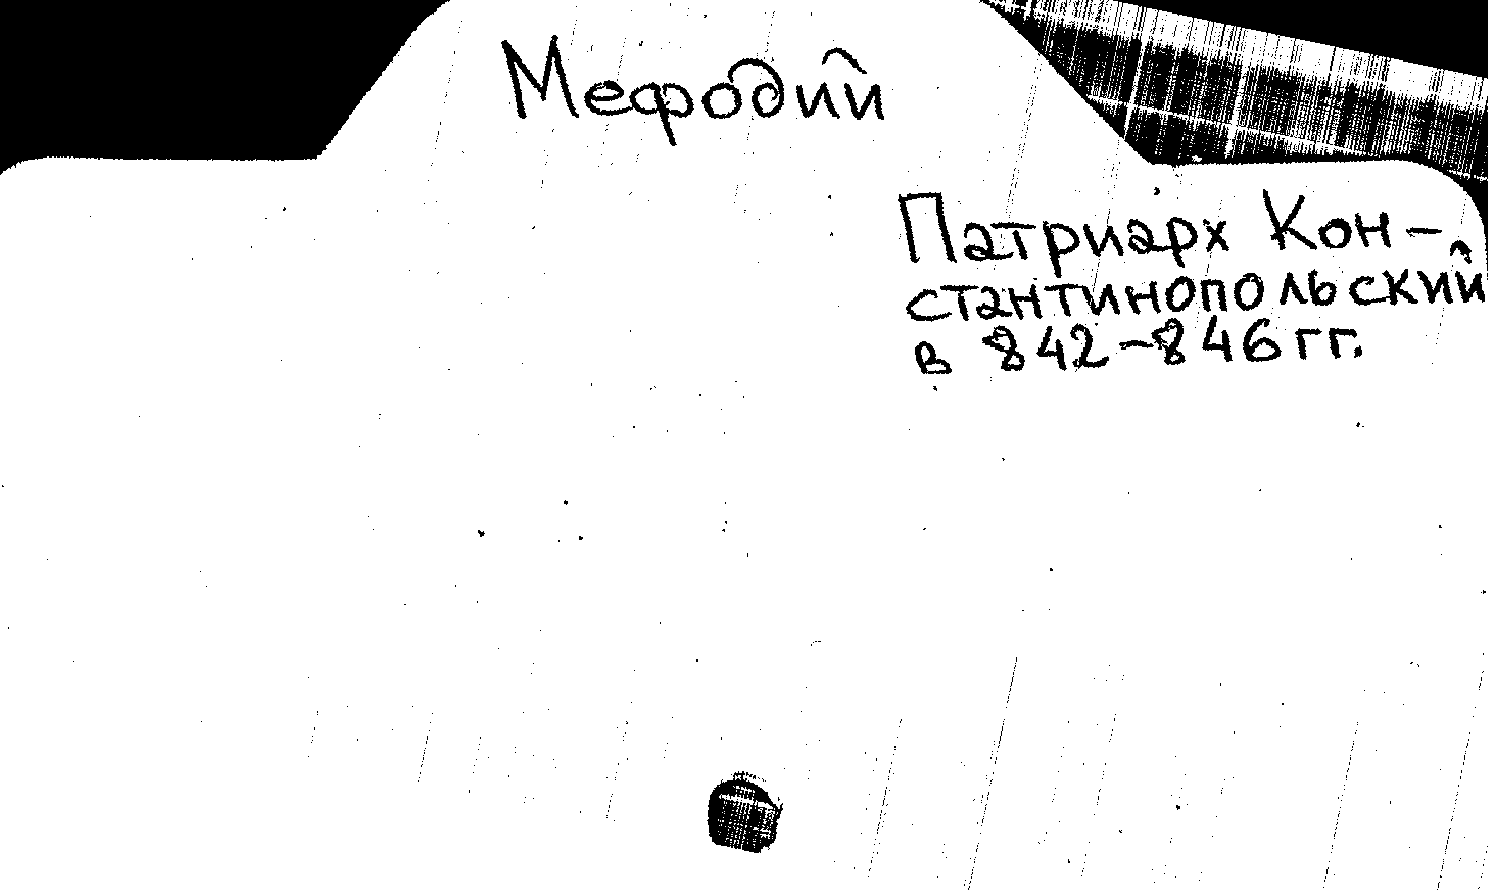 Мефодий
Патриарх Кон-
стантинопольский
в 842-846 гг.